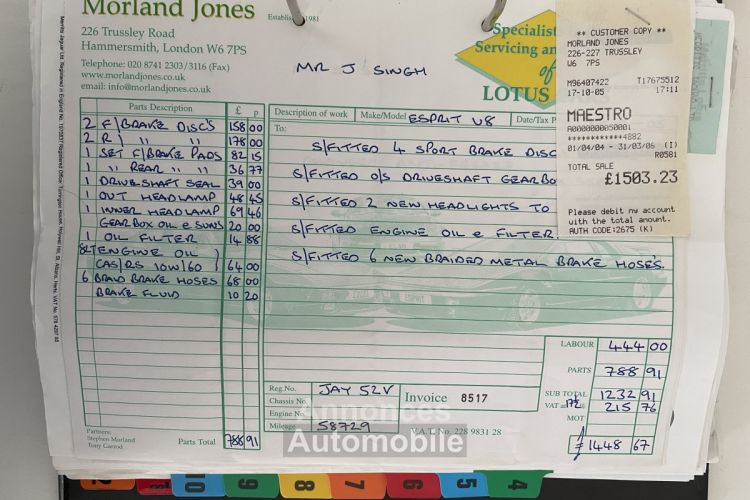 Morland Jones
Established 1981
226 Trussley Road
Hammersmith, London W6 7PS
Telephone: 020 8741 2303/3116 (Fax)
www.morlandjones.co.uk
email: info@morlandjones.co.uk
MR J SINGH
Specialist
Servicing an
of
LOTUS
** CUSTOMER COPY **
MORLAND JONES
226-227 TRUSSLEY
W6 7PS
M96407422 T17675512
17-10-05 17:11
MAESTRO
A0000000050001
************4882
01/04/04 - 31/03/06 (I)
R0501
TOTAL SALE
£1503.23
Please debit my account
with the total amount.
AUTH CODE:2675 (K)
Parts Description £ p
2 F/BRAKE DISC'S 158 00
2 R/ " " 178 00
1 SET F/BRAKE PADS 82 15
1 " REAR " " 36 77
1 DRIVESHAFT SEAL 39 00
1 OUT HEADLAMP 48 45
1 INNER HEADLAMP 69 46
GEARBOX OIL & SUNS 20 00
1 OIL FILTER 14 88
ENGINE OIL
CAS/RS 10W/60 64 00
6 BRAID BRAKE HOSES 68 00
BRAKE FLUID 10 20
Partners:
Stephen Morland
Tony Garrod
Parts Total 788 91
Description of work Make/Model ESPRIT V8 Date/Tax P
To:
S/FITTED 4 SPORT BRAKE DISC
S/FITTED O/S DRIVESHAFT GEARBO
S/FITTED 2 NEW HEADLIGHTS TO
S/FITTED ENGINE OIL & FILTER
S/FITTED 6 NEW BRAIDED METAL BRAKE HOSES.
Reg.No. JAY 52V
Chassis No.
Engine No.
Mileage 58729
Invoice 8517
V.A.T. No. 228 9831 28
LABOUR 444 00
PARTS 788 91
SUB TOTAL 1232 91
VAT 17½ 215 76
MOT
£ 1448 67
Annonces
Automobile
10 9 8 7 6 5 4